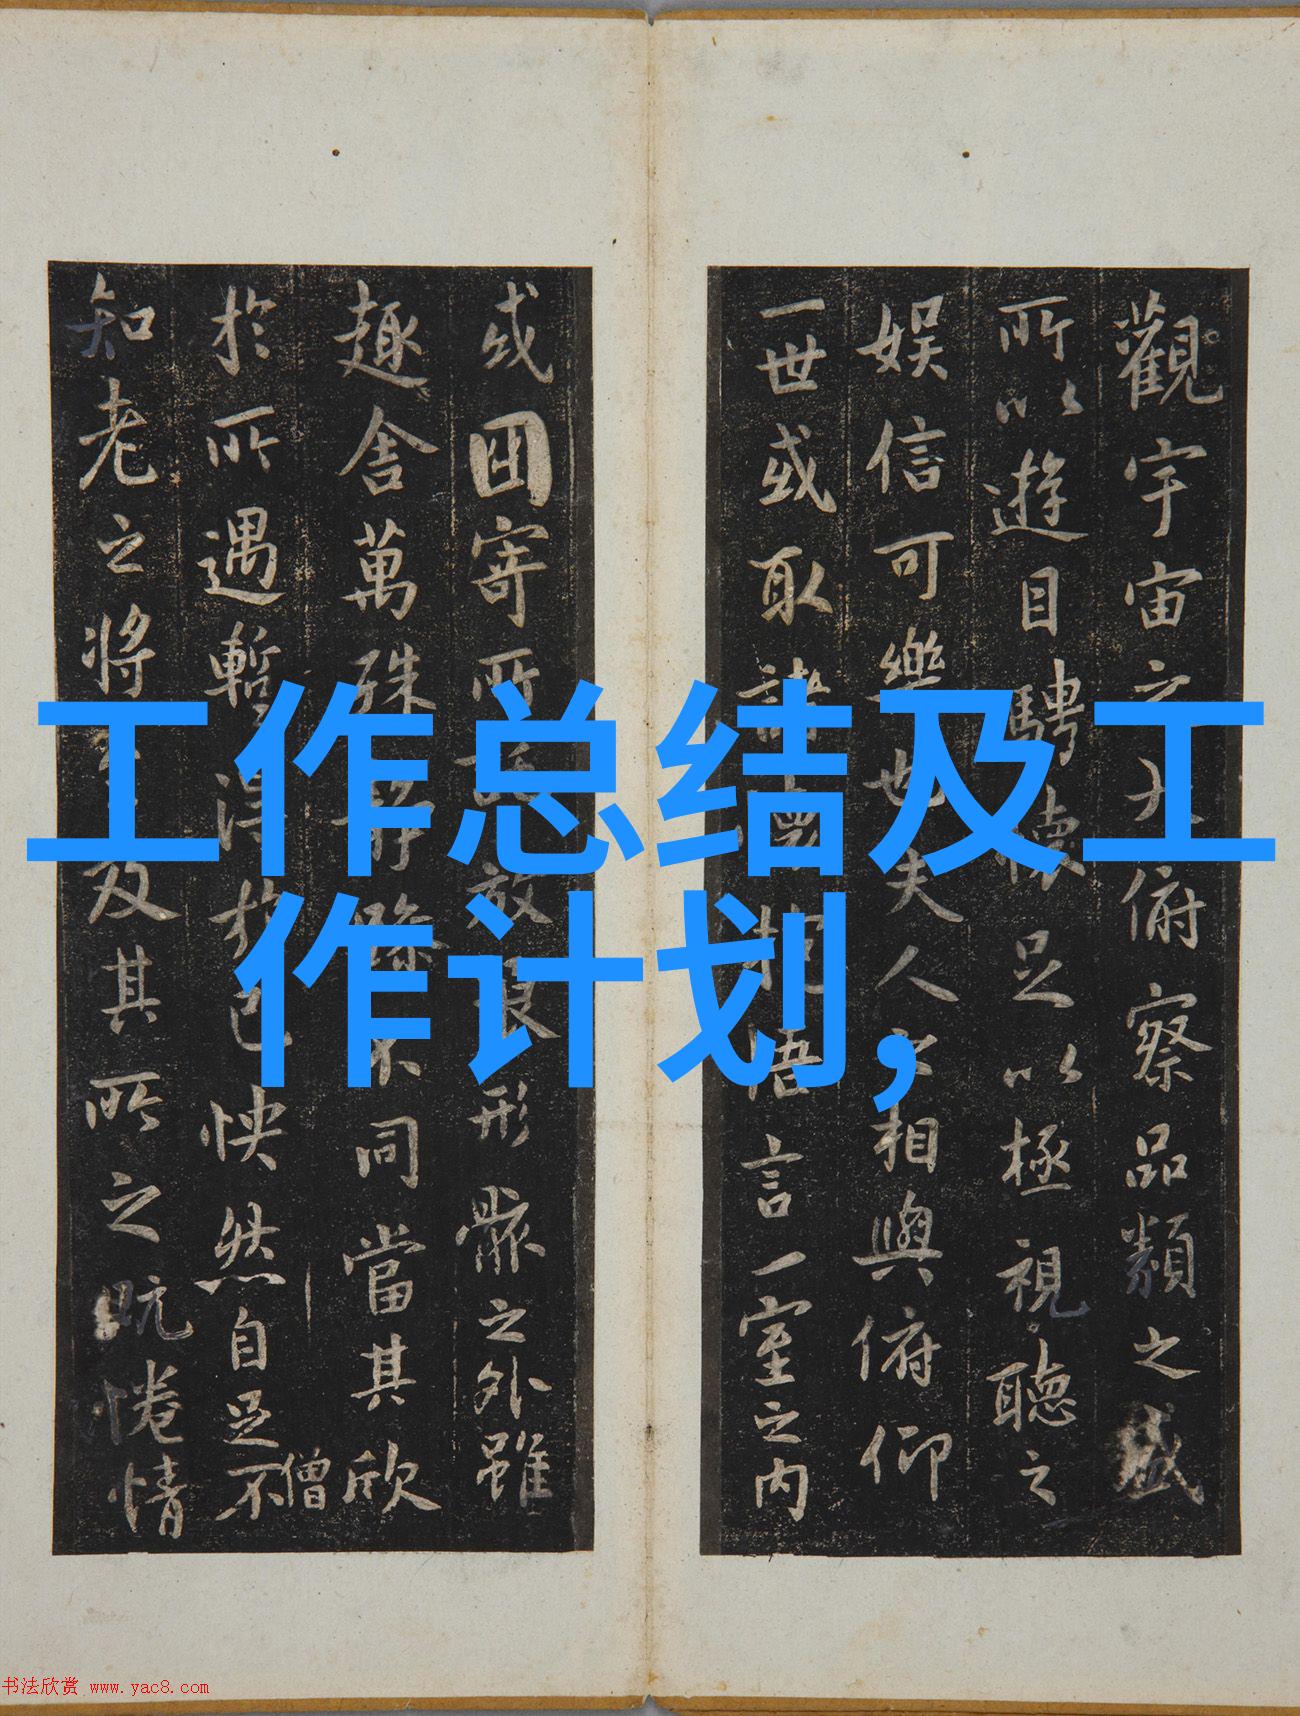 觀宇宙之大俯察品類之盛
所以遊目騁懷足以極視聽之
娛信可樂也夫人之相與俯仰
一世或取諸懷抱悟言一室之內
或因寄所託放浪形骸之外雖
趣舍萬殊靜躁不同當其欣
僧
於所遇暫得於己怏然自足不
知老之將至及其所之既惓情
工作总结及工
作计划,
书法欣赏 www.yac8.com